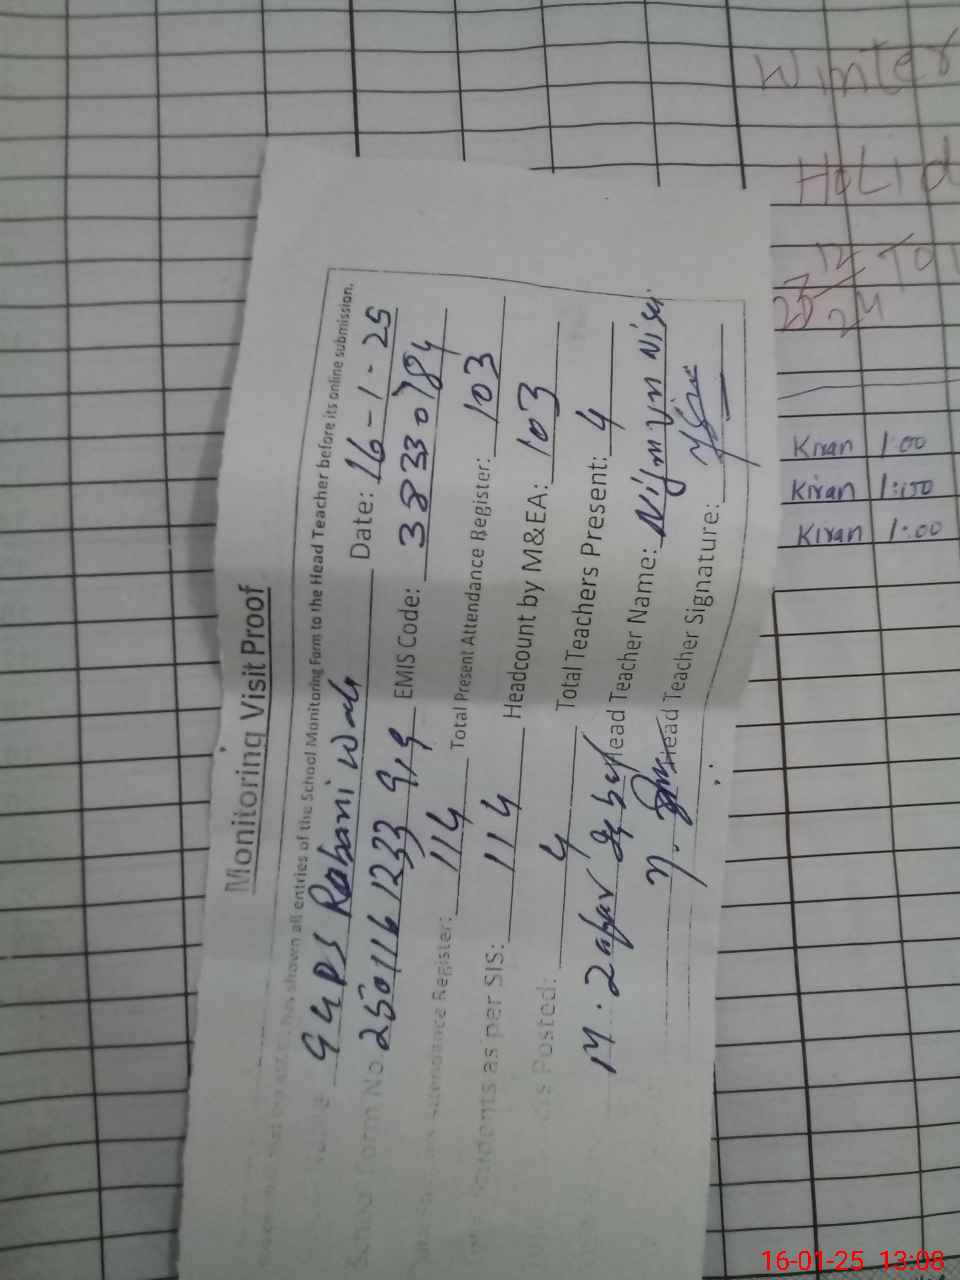 Monitoring Visit Proof
has shown all entries of the School Monitoring Form to the Head Teacher before its online submission.
GGPS Rabani Wah Date: 16-1-25
School Form No. 2501161233 EMIS Code: 38330784
Attendance Register: 114 Total Present Attendance Register: 103
Students as per SIS: 114 Headcount by M&EA: 103
Posted: 4 Total Teachers Present: 4
M. Zafar Head Teacher Name:
Head Teacher Signature:
Winter
Holid
12 TO
2024
Kiran 1:00
Kiran 1:00
Kiran 1:00
16-01-25 13:08